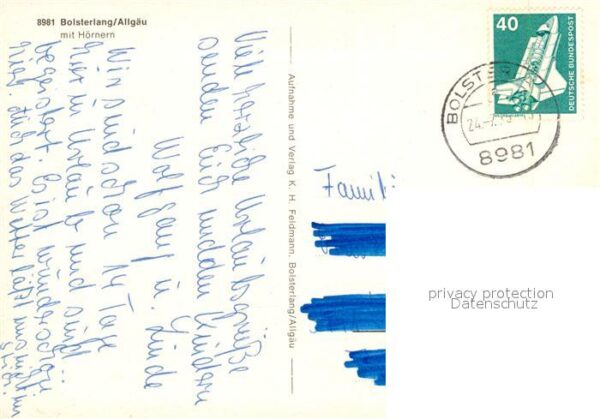 8981 Bolsterlang/Allgäu
mit Hörnern
Viele herzliche Urlaubsgrüße
senden Euch und den Kindern
Wolfgang u. Linde
Wir sind schon 14 Tage
hier in Urlaub und sind
begeistert. Es ist wunderschön
hier auch das Wetter läßt uns nicht im
Stich!
Aufnahme und Verlag K. H. Feldmann, Bolsterlang/Allgäu
40
DEUTSCHE BUNDESPOST
BOLST
24.
8981
Famili
privacy protection
Datenschutz